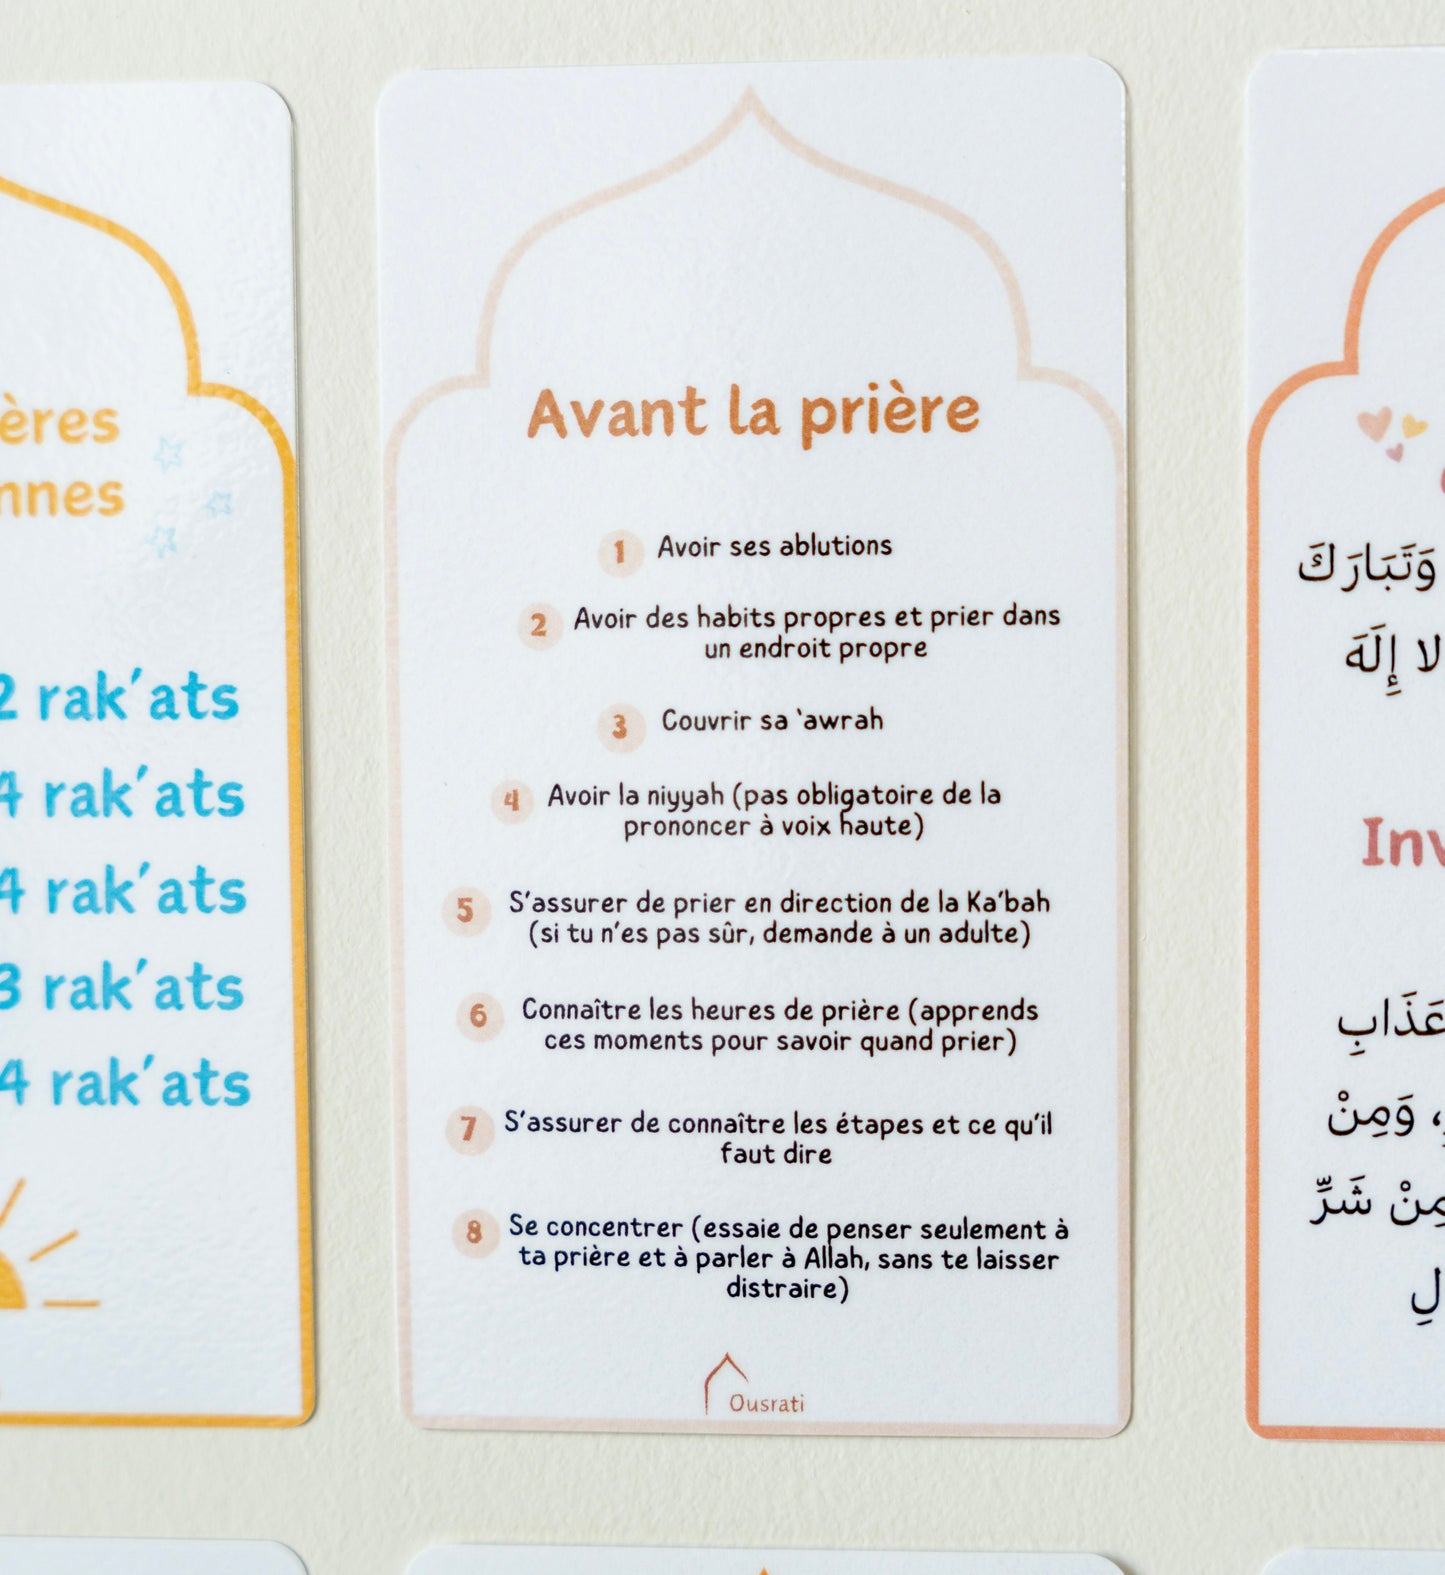 2 rak'ats
4 rak'ats
4 rak'ats
3 rak'ats
4 rak'ats
Avant la prière
1 Avoir ses ablutions
2 Avoir des habits propres et prier dans
un endroit propre
3 Couvrir sa 'awrah
4 Avoir la niyyah (pas obligatoire de la
prononcer à voix haute)
5 S'assurer de prier en direction de la Ka'bah
(si tu n'es pas sûr, demande à un adulte)
6 Connaître les heures de prière (apprends
ces moments pour savoir quand prier)
7 S'assurer de connaître les étapes et ce qu'il
faut dire
8 Se concentrer (essaie de penser seulement à
ta prière et à parler à Allah, sans te laisser
distraire)
Ousrati
وَتَبَارَكَ
لا إِلَهَ
عَذَابِ
وَمِنْ
مِنْ شَرِّ